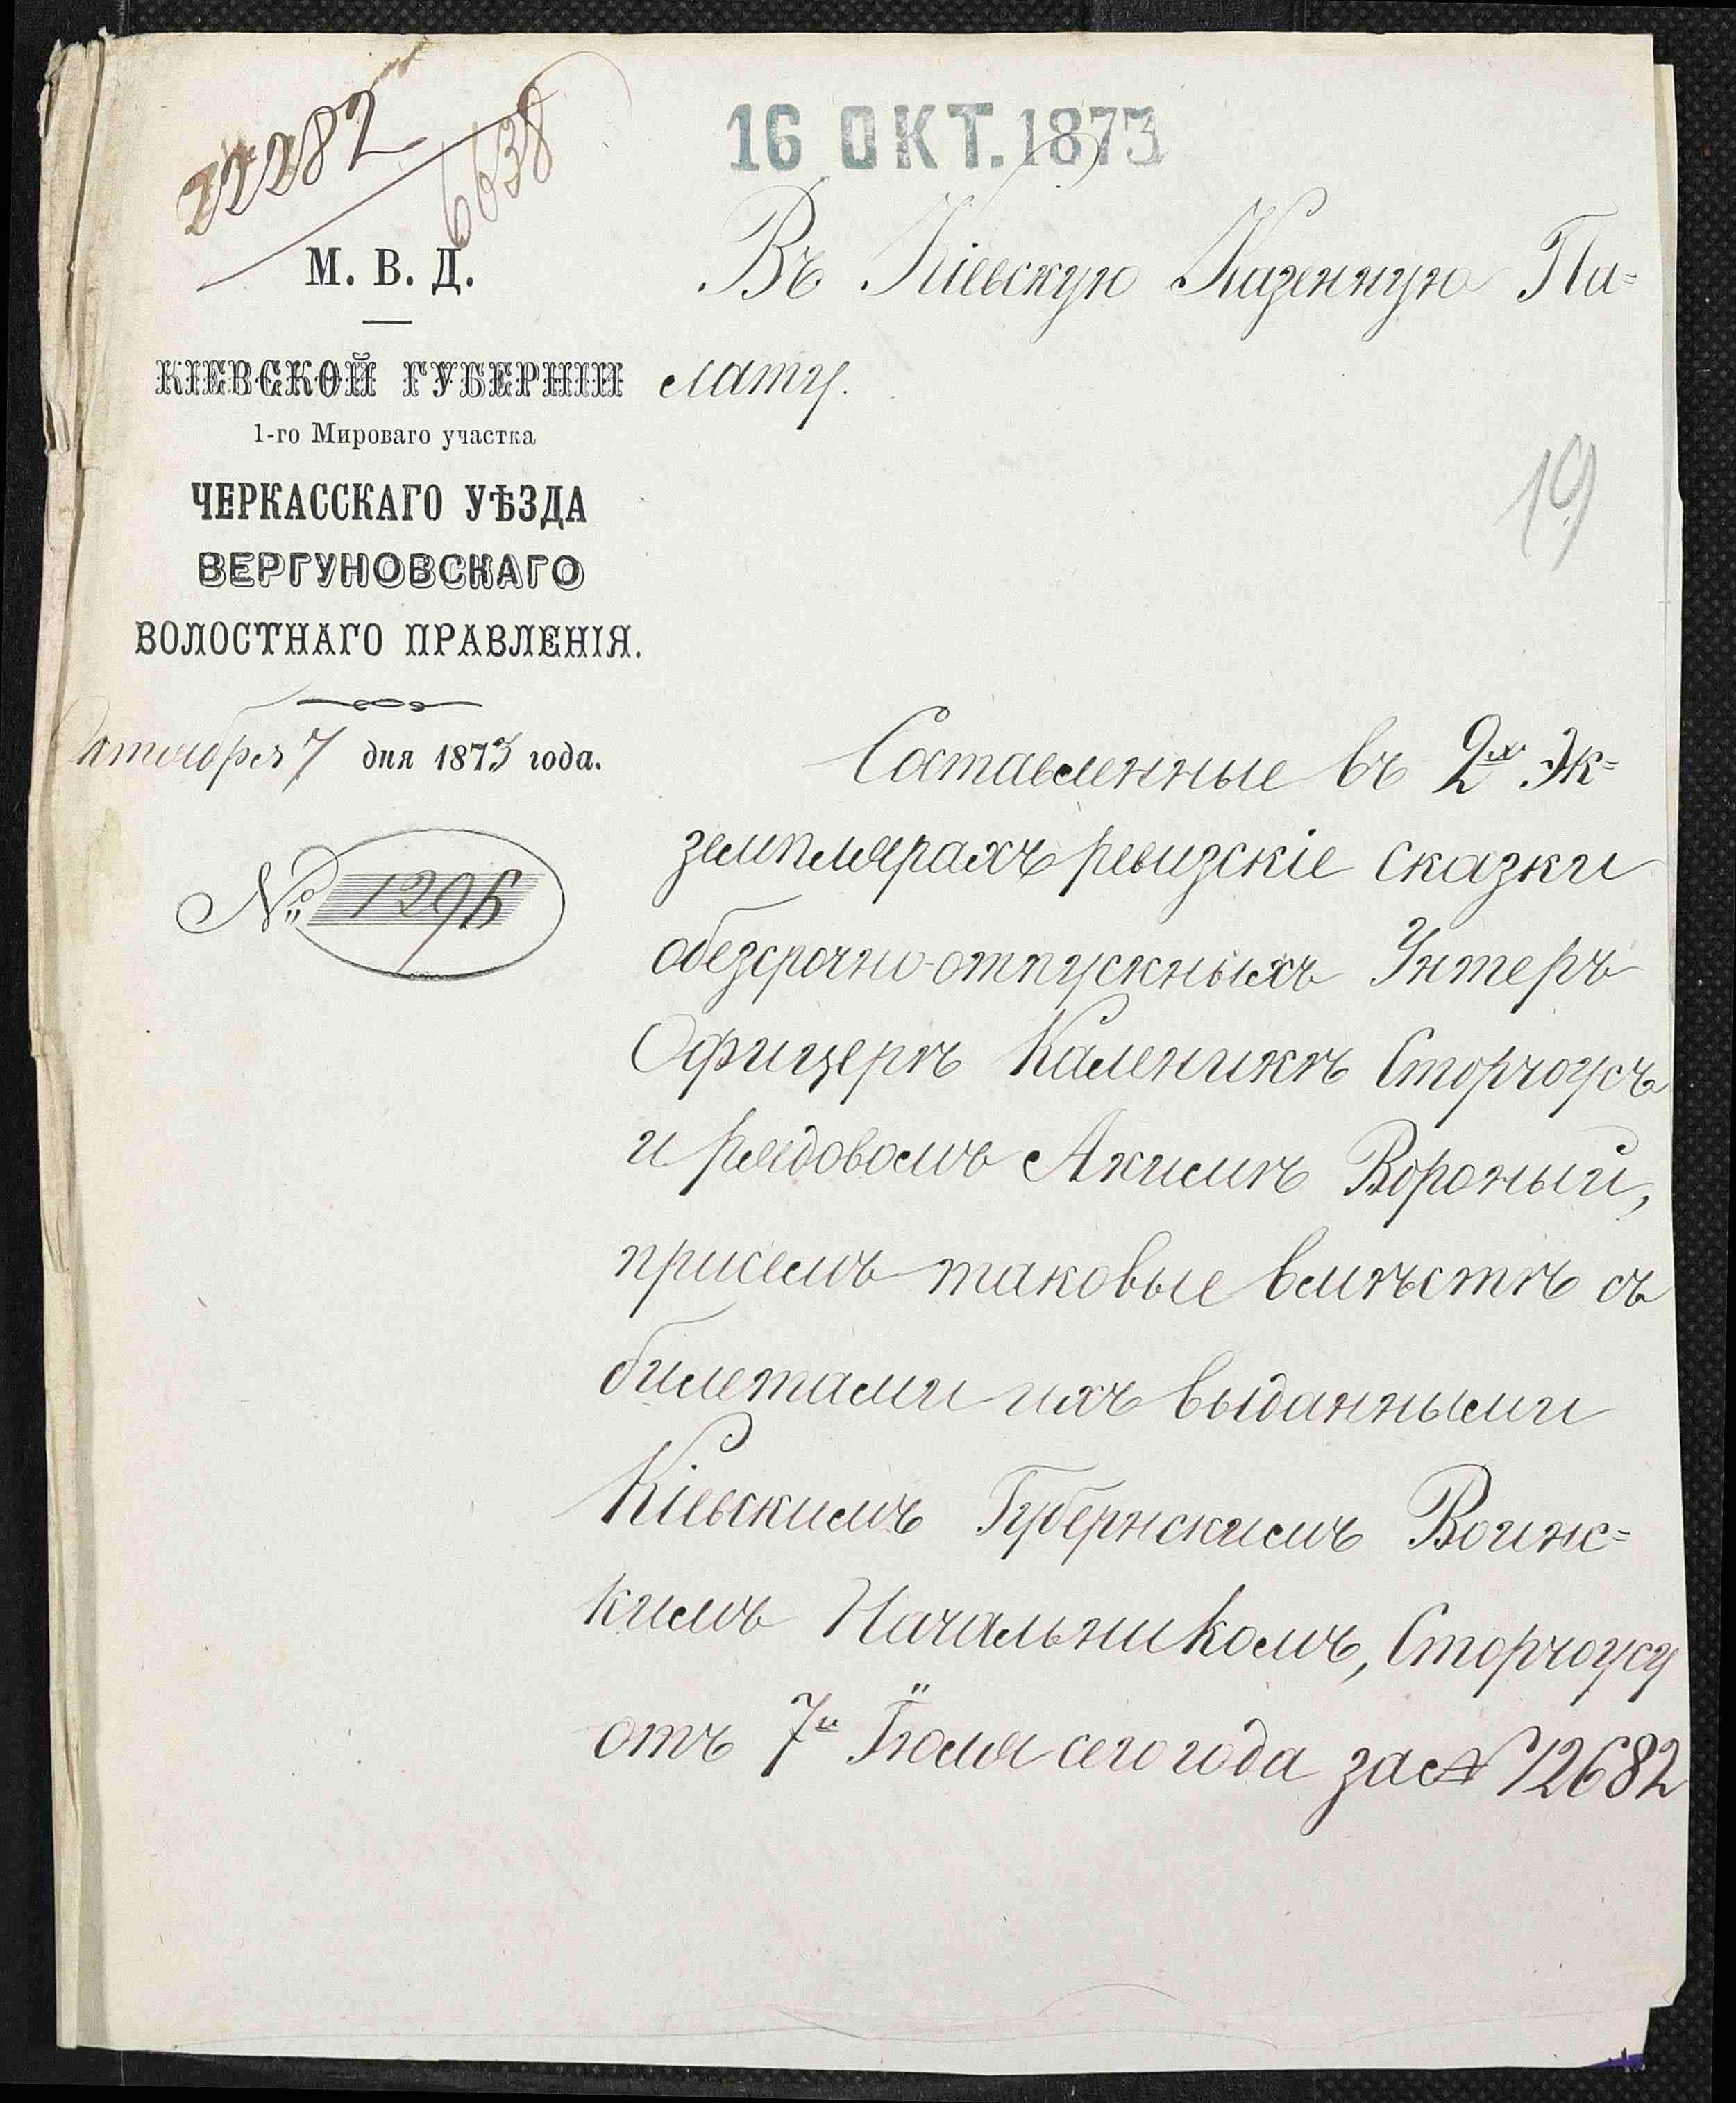 22282
6638
16 ОКТ. 1873
М. В. Д.
КІЕВСКОЙ ГУБЕРНІИ
1-го Мироваго участка
ЧЕРКАССКАГО УѢЗДА
ВЕРГУНОВСКАГО
ВОЛОСТНАГО ПРАВЛЕНІЯ.
Октября 7 дня 1873 года.
№ 1296
Въ Кіевскую Казенную Па=
лату.
19
Составленные въ 2хъ Эк=
земплярахъ ревизскіе сказки
обезсрочно-отпускныхъ Унтеръ
Офицерѣ Каленикѣ Сторчоусъ
и рядовомъ Акимѣ Вороный,
при семъ таковые вмѣстѣ съ
билетами ихъ выданными
Кіевскимъ Губернскимъ Воинс=
кимъ Начальникомъ, Сторчоусу
отъ 7го Іюля сего года за № 12682